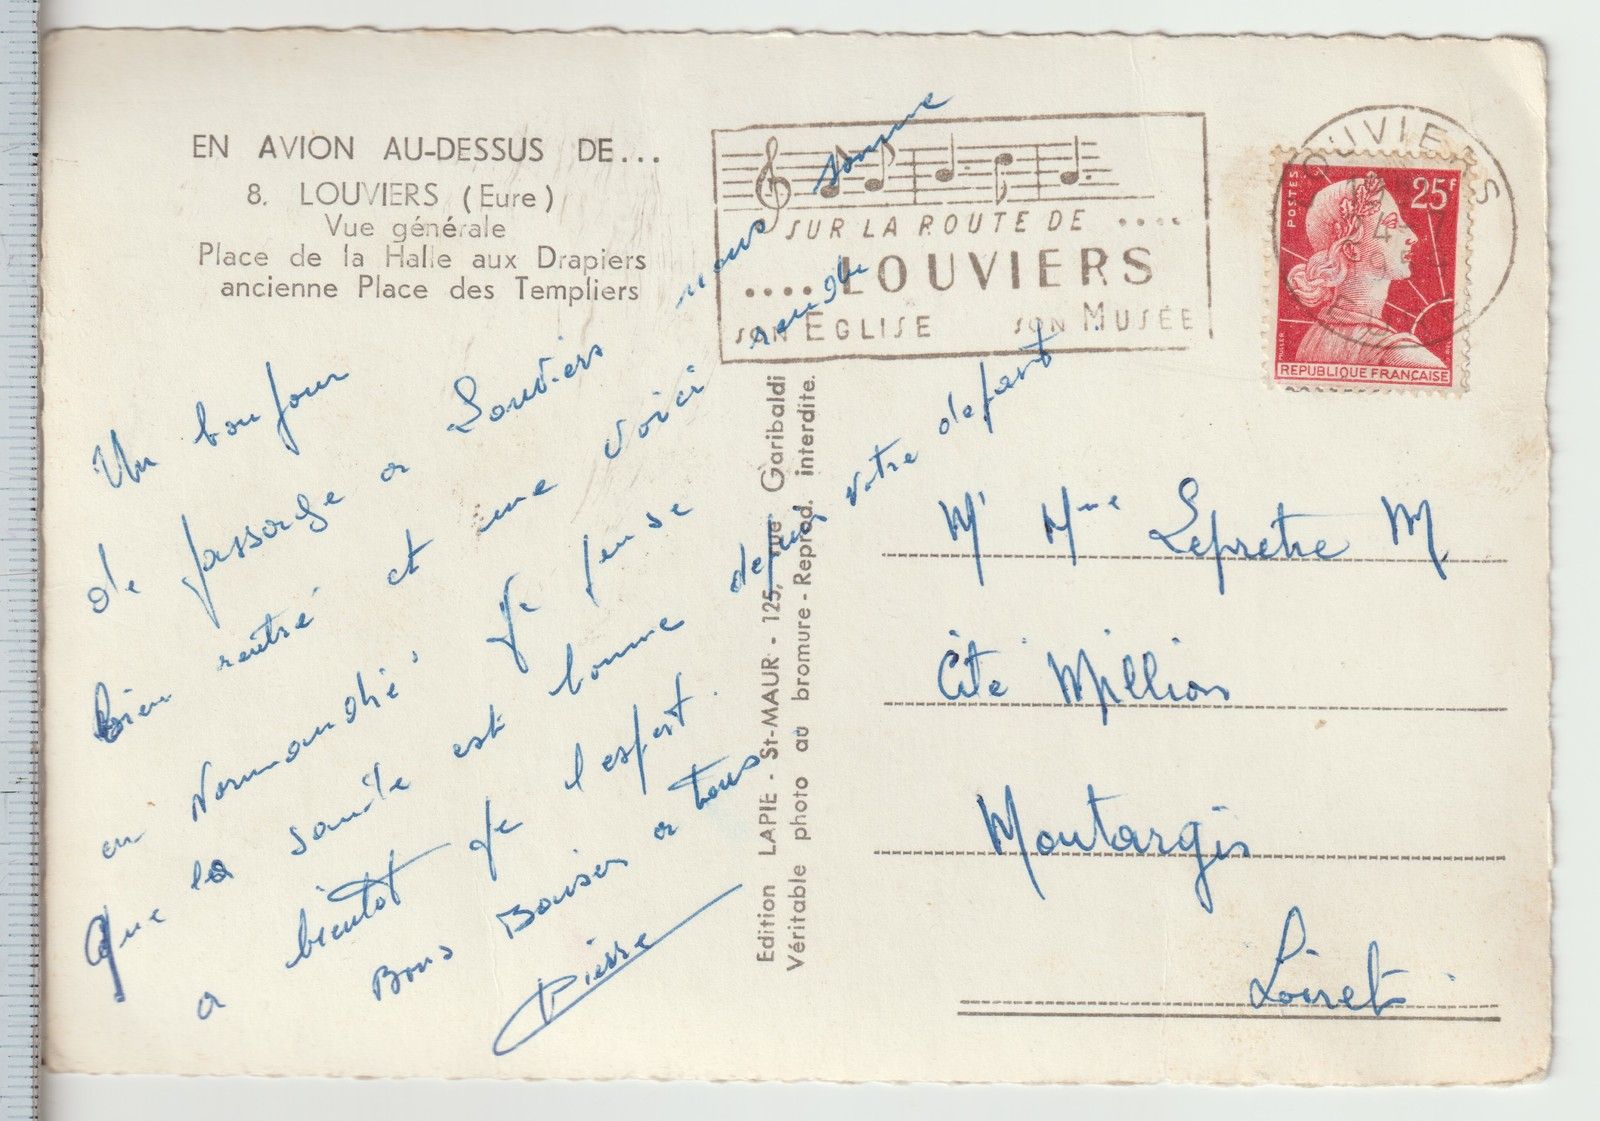 EN AVION AU-DESSUS DE...
8. LOUVIERS (Eure)
Vue générale
Place de la Halle aux Drapiers
ancienne Place des Templiers
SUR LA ROUTE DE ....
.... LOUVIERS
SON EGLISE SON MUSÉE
LOUVIERS
POSTES
25F
MULLER
REPUBLIQUE FRANÇAISE
Un bonjour
de passage a Louviers nous somme
bien rentré et une voici
en Normandie Je pense
que la santé est bonne depuis votre depart
a bientot je l'espert.
Bons Baiser a tous
Pierre
Edition LAPIE - St-MAUR - 125, rue Garibaldi
Véritable photo au bromure - Reprod. interdite.
Mr Mme Lepretre M
Cité Million
Montargis
Loiret